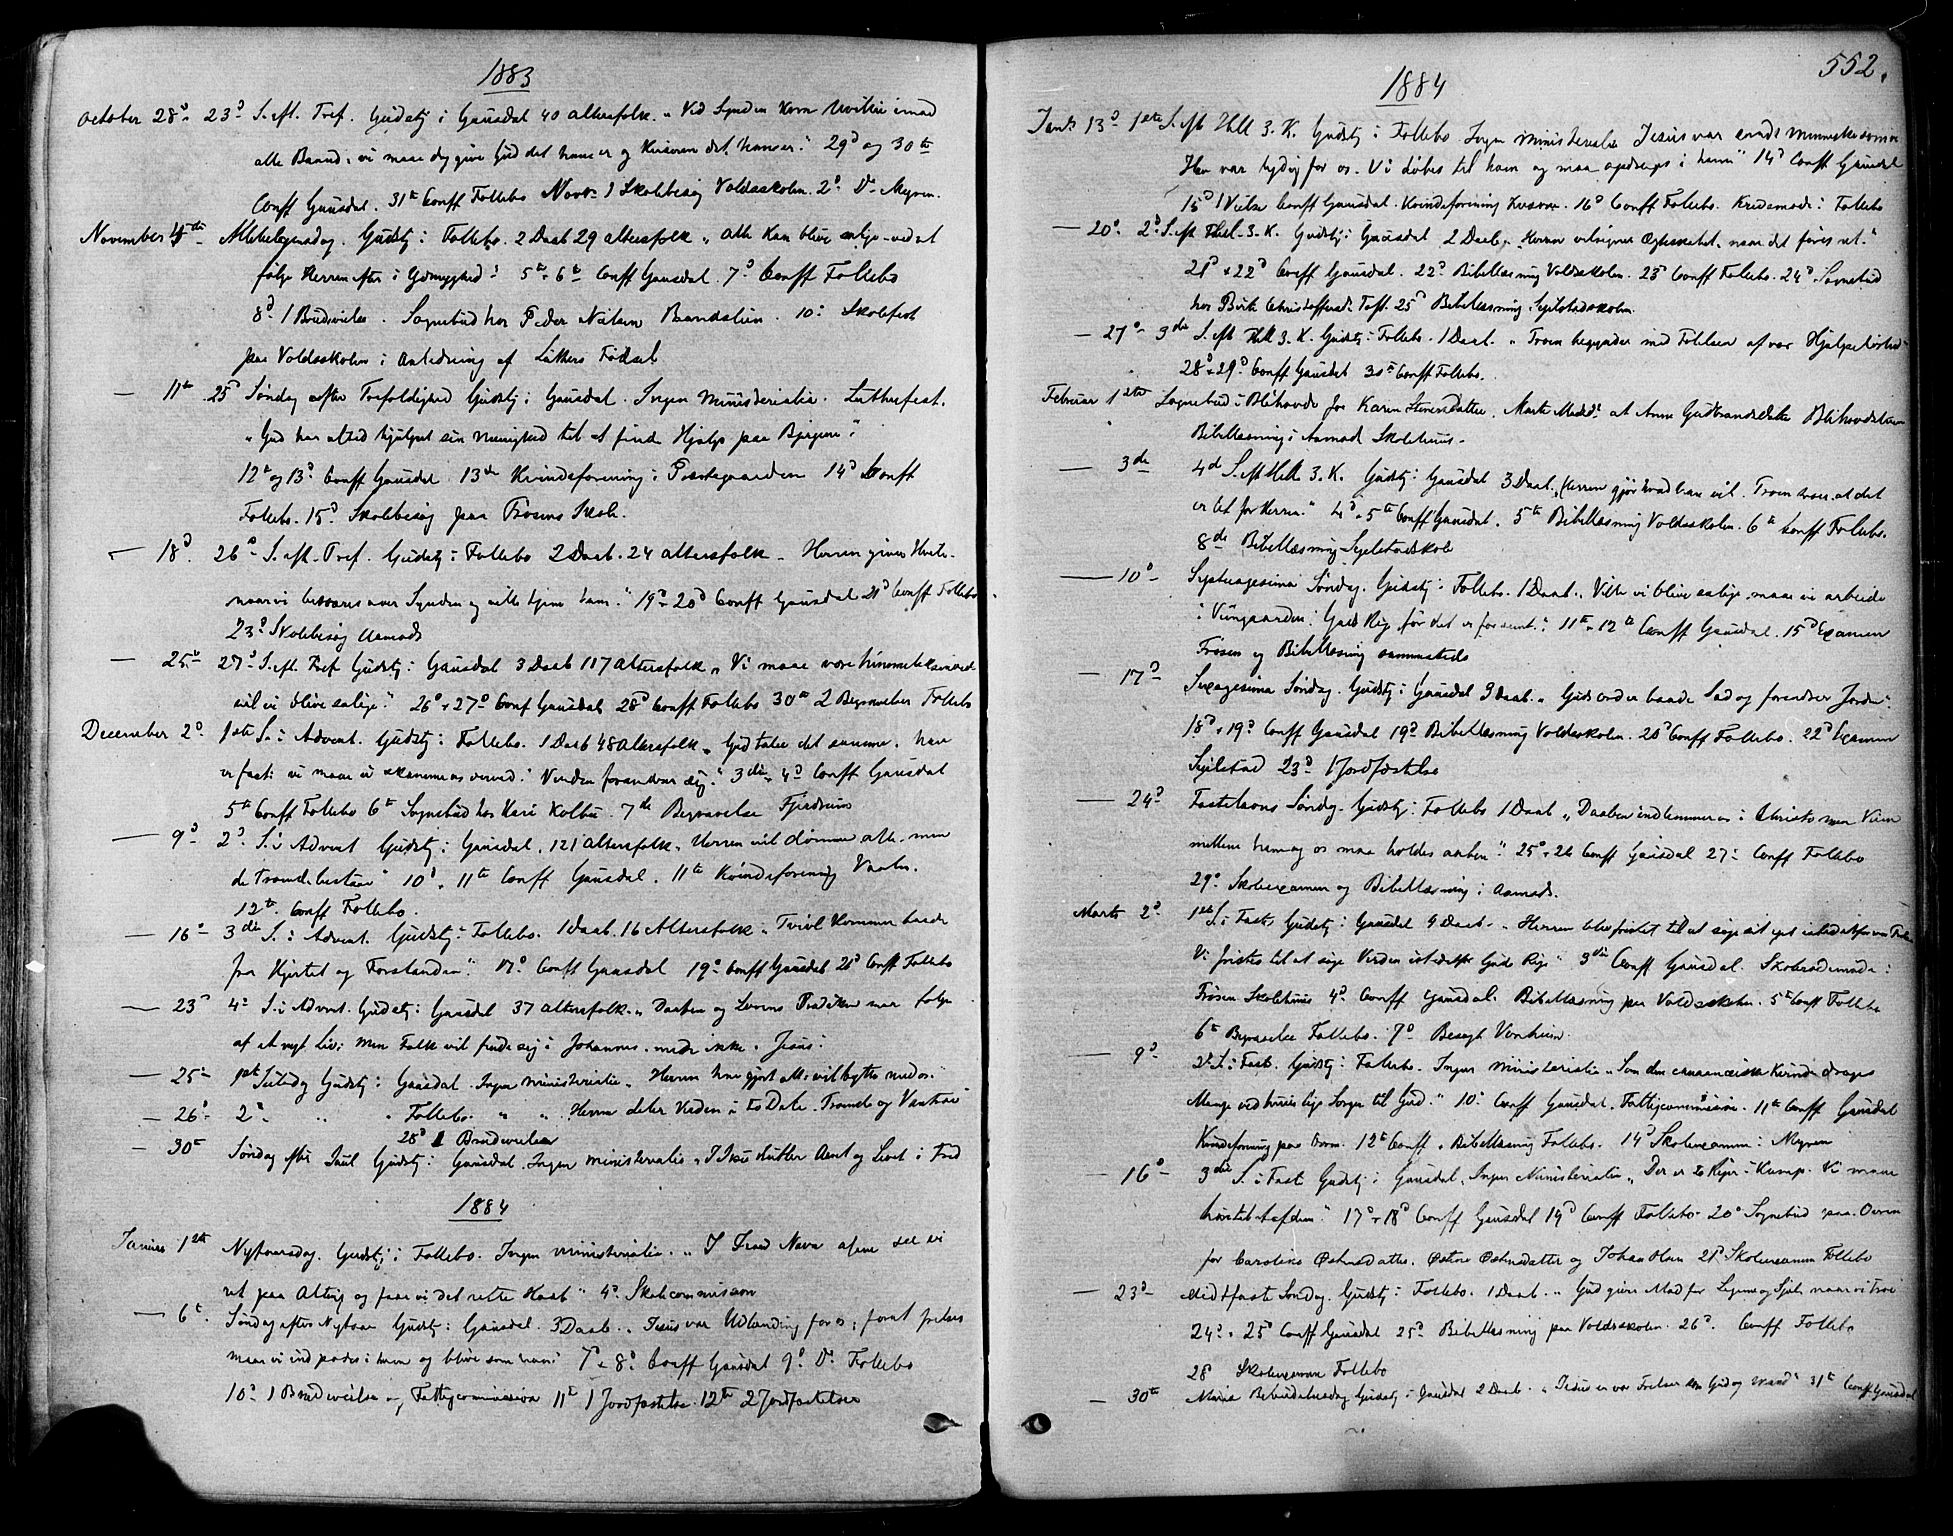 1883
October 28d 23d S. eft. Tref. Gudstj. i Gausdal 40 altersfolk. „Ved Synden kom Uvillie imod
alle Baand; vi maa dog give Gud det hans er og Keiseren det hans er." 29d og 30te
Conff Gausdal. 31te Conff Follebo Novbr 1 Skolebesøg Voldsskolen. 2d Do Myren.
November 4de Allehelgensdag. Gudstj. i Follebo. 2 Daab 29 altersfolk „Alle kan blive salige ved at
følge Herren efter i Ydmyghed." 5te & 6te Conff Gausdal. 7d Conff Follebo
8d 1 Brudevielse. Sognebud hos Peder Nilsen. 10d Skolefest
paa Voldsskolen i Anledning af Luthers Fødsel
— 11te 25d Søndag efter Trefoldighed Gudstj. i Gausdal. Ingen ministerialia. Lutherfest.
„Gud har altid hjulpet sin Menighed til at finde Hjælp paa Bjergene".
12te og 13d Conff Gausdal. 13de Kvindeforening i Præstegaarden 14d Conff
Follebo. 15d Skolebesøg paa Frøsens Skole.
— 18d 26d S. eft. Tref. Gudstj. i Follebo 2 Daab. 24 altersfolk — Herren giver Hvile
naar vi besværes over Synden og ville tjene ham." 19d & 20d Conff Gausdal 21d Conff Follebo
23d Skolebesøg Aamodt
— 25d 27d S. eft. Tref Gudstj. i Gausdal 3 Daab 117 Altersfolk „Vi maae være himmelsksindede
vil vi blive salige." 26d & 27d Conf Gausdal 28d Conff Follebo 30te 2 Begravelser Follebo
December 2d 1ste S. i Advent. Gudstj. i Follebo. 1 Daab 48 Altersfolk „Gud taler det samme, han
er fast; vi maa ei skamme os verved. Verden forandrer sig." 3die & 4d Conff Gausdal
5te Conff Follebo 6te Sognebud hos Kari Kolbu. 7de Begravelse Fjerdrum
— 9d 2d S. i Advent Gudstj. i Gausdal, 121 Altersfolk „Herren vil dømme alle, men
de troende bestaae" 10d & 11te Conff Gausdal. 11te Kvindeforening
12te Conff Follebo.
— 16d 3die S. i Advent. Gudstj. i Follebo. 1 Daab. 16 Altersfolk „Tvivl kommer baade
fra Hjertet og Forstanden". 17d Conff Gausdal 19d Conff Gausdal 20d Conff Follebo
— 23d 4d S. i Advent. Gudstj. i Gausdal 37 Altersfolk. „Daaben og Lovens Prædiken maa følge
af et nyt Liv; men Folk vil finde sig i Johannes, mede ikke i Jesus.
— 25d 1ste Juledag Gudstj. i Gausdal. Ingen ministerialia „Herren har gjort Alt; vil bytte med os"
— 26d 2d „ „ Follebo. „ „ Herren deler Verden i to Dele. Troende og Vantroe
28d 1 Brudevielse
— 30te Søndag efter Juul Gudstj. i Gausdal. Ingen ministerialia „I Jesu slutter Aaret og Livet i Fred
1884
Januar 1ste Nytaarsdag. Gudstj. i Follebo. Ingen ministerialia. „I Jesu Navn alene see vi
ret paa Alting og faar vi det rette Haab" 4d Skolecommission
— 6te Søndag efter Nytaar Gudstj. i Gausdal. 3 Daab. „Jesus var Udlænding for os; for at frelses
maa vi indpodes i ham og blive som ham" 7d & 8d Conff Gausdal 9d Do Follebo
10d 1 Brudevielse og Fattigcommission 11te 1 Jordfæstelse 12te 2 Jordfæstelser
552.
1884
Januar 13d 1ste S. eft Hell 3. K. Gudstj. i Follebo Ingen Ministerialia Jesus var sandt Menneske som
Han var lydig for os. Vi døbes til ham og maa opdrages i ham" 14d Conff Gausdal
15d 1 Vielse Conff Gausdal. Kvindeforening. 16d Conff Follebo. Kredsmøde i Follebo
— 20d 2d S. eft Hel. 3. K. Gudstj. i Gausdal 2 Daab „Herren velsigner Ægteskabet, naar det føres ret."
21d & 22d Conff Gausdal. 22d Bibellæsning Voldsskolen. 23d Conff Follebo. 24d Sognebud
hos Berth Christoffersd. Toft. 25d Bibellæsning Sejelstadskolen.
— 27d 3die S. eft Hell 3. K. Gudstj. i Follebo. 1 Daab. „Troen begynder med Følelsen af vor Hjælpeløshed"
28d & 29d Conff Gausdal 30te Conff Follebo.
Februar 1ste Sognebud i Blihovde for Karen Steensdatter, Marte Madsd. at Anne Gudbrandsdatter Blihovdstuen
Bibellæsning i Aamod Skolehuus.
— 3de 4d S. eft Hell 3. K. Gudstj. i Gausdal 3 Daab. „Herren gjør hvad han vil. Troen troer, at det
er let for Herren." 4d & 5te Conff Gausdal. 5te Bibellæsning Voldsskolen. 6te Conff Follebo.
8de Bibellæsning Sejelstadskole
— 10d Septuagesima Søndag. Gudstj. i Follebo. 1 Daab. „Ville vi blive salige, maa vi arbeide
i Viingaarden: Guds Rige før det er for seent". 11te & 12te Conff Gausdal. 15d Examen
Frøsen og Bibellæsning sammesteds
— 17d Sexagesima Søndag. Gudstj. i Gausdal 3 Daab. „Guds ord er baade Sæd og forandrer Jorden".
18d & 19d Conff Gausdal 19d Bibellæsning Voldsskolen. 20d Conff Follebo. 22d Examen
Sejelstad 23d 1 Jordfæstelse
— 24d Fastelavns Søndag. Gudstj. i Follebo 1 Daab „Daaben indlemmer os i Christo men Veien
mellem ham og os maa holdes aaben." 25d & 26 Conff Gausdal 27d Conff Follebo
29d Skoleexamen og Bibellæsning i Aamodt.
Marts 2d 1ste S. i Fast. Gudstj. i Gausdal 4 Daab. „Herren blev fristet til at søge sit eget istedetfor vor Frelse
Vi fristes til at søge Verden istedetfor Guds Rige" 3die Conff Gausdal. Skolerademøde i
Frøsen Skolehuus 4d Conff Gausdal. Bibellæsning paa Voldsskolen. 5te Conff Follebo
6te Begravelse Follebo. 7d Besøgt Vonheim.
— 9d 2d S. i Fast. Gudstj. i Follebo. Ingen ministerialia „Som den cananæiske Kvinde drages
Mange ved huuslige Sorger til Gud." 10d Conff Gausdal. Fattigcommission. 11te Conff Gausdal
Kvindeforening paa. 12te Conff & Bibellæsning Follebo. 14d Skoleexamen i Myren
— 16d 3die S. i Faste Gudstj. i Gausdal. Ingen Ministerialia „Der er to Riger i Kamp. Vi maae
til et af dem." 17d & 18d Conff Gausdal 19d Conff Follebo 20d Sognebud paa
for Caroline Østensdatter, Østine Østensdatter og Johan Olsen 21d Skoleexamen Follebo
— 23d Midtfaste Søndag. Gudstj. i Follebo. 1 Daab. „Gud giver Mad for Legeme og Sjæl, naar vi troe
24d & 25d Conff Gausdal 25d Bibellæsning paa Voldsskolen. 26d. Conff Follebo
28 Skoleexamen Follebo
— 30te Mariæ Bebudelsesdag Gudstj. i Gausdal 2 Daab. „Jesus er vor Frelser som Gud og Mand" 31te Conff Gausdal